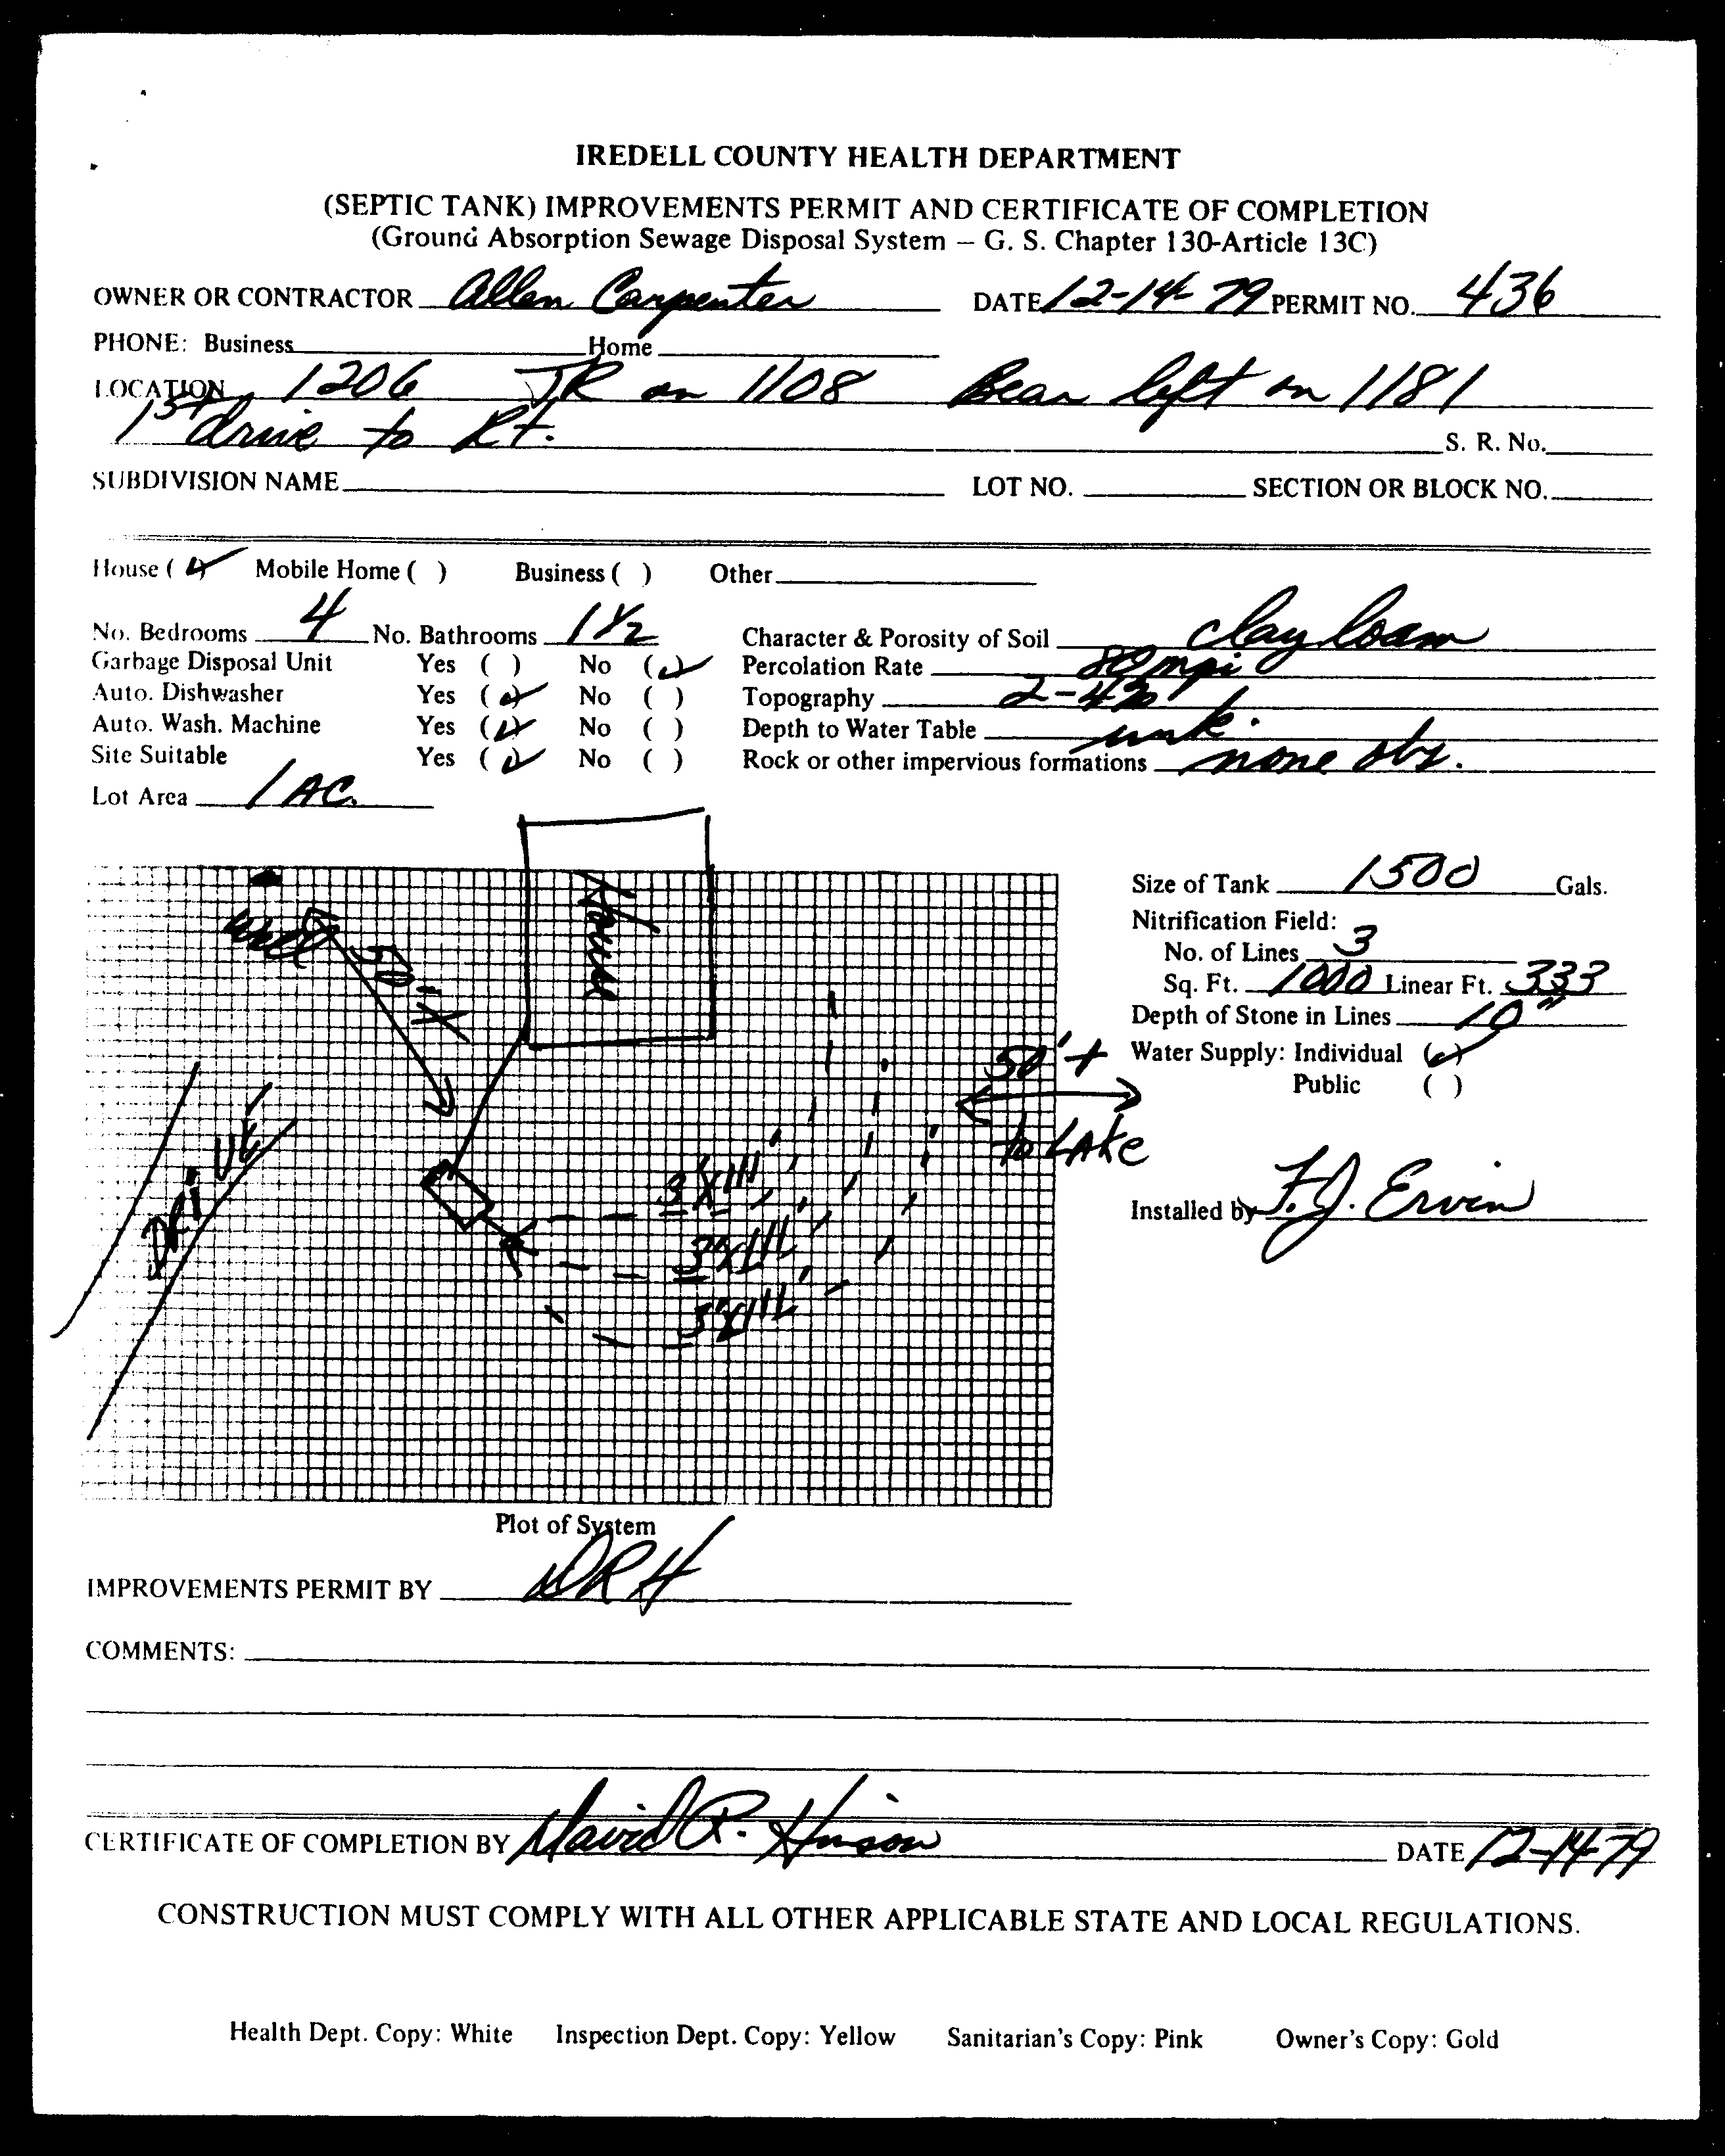 IREDELL COUNTY HEALTH DEPARTMENT
(SEPTIC TANK) IMPROVEMENTS PERMIT AND CERTIFICATE OF COMPLETION
(Ground Absorption Sewage Disposal System – G. S. Chapter 130-Article 13C)
OWNER OR CONTRACTOR Allen Carpenter DATE 12-14-79 PERMIT NO. 436
PHONE: Business Home
LOCATION 1206 TR on 1108 Bear left on 1181
1st drive to Rt. S. R. No.
SUBDIVISION NAME LOT NO. SECTION OR BLOCK NO.
House (✓) Mobile Home ( ) Business ( ) Other
No. Bedrooms 4 No. Bathrooms 1 1/2 Character & Porosity of Soil clay loam
Garbage Disposal Unit Yes ( ) No (✓) Percolation Rate 80 mpi
Auto. Dishwasher Yes (✓) No ( ) Topography 2-4%
Auto. Wash. Machine Yes (✓) No ( ) Depth to Water Table unk.
Site Suitable Yes (✓) No ( ) Rock or other impervious formations none obs.
Lot Area 1 AC.
House
Size of Tank 1500 Gals.
well
50'+
Nitrification Field:
No. of Lines 3
Sq. Ft. 1000 Linear Ft. 333
Depth of Stone in Lines 10"
50'+
Water Supply: Individual (✓)
Public ( )
to LAke
DriVE
3'X111'
3'X111'
3'X111'
Installed by F.J. Ervin
Plot of System
IMPROVEMENTS PERMIT BY DRH
COMMENTS:
CERTIFICATE OF COMPLETION BY David R. Hinson DATE 12-14-79
CONSTRUCTION MUST COMPLY WITH ALL OTHER APPLICABLE STATE AND LOCAL REGULATIONS.
Health Dept. Copy: White Inspection Dept. Copy: Yellow Sanitarian's Copy: Pink Owner's Copy: Gold